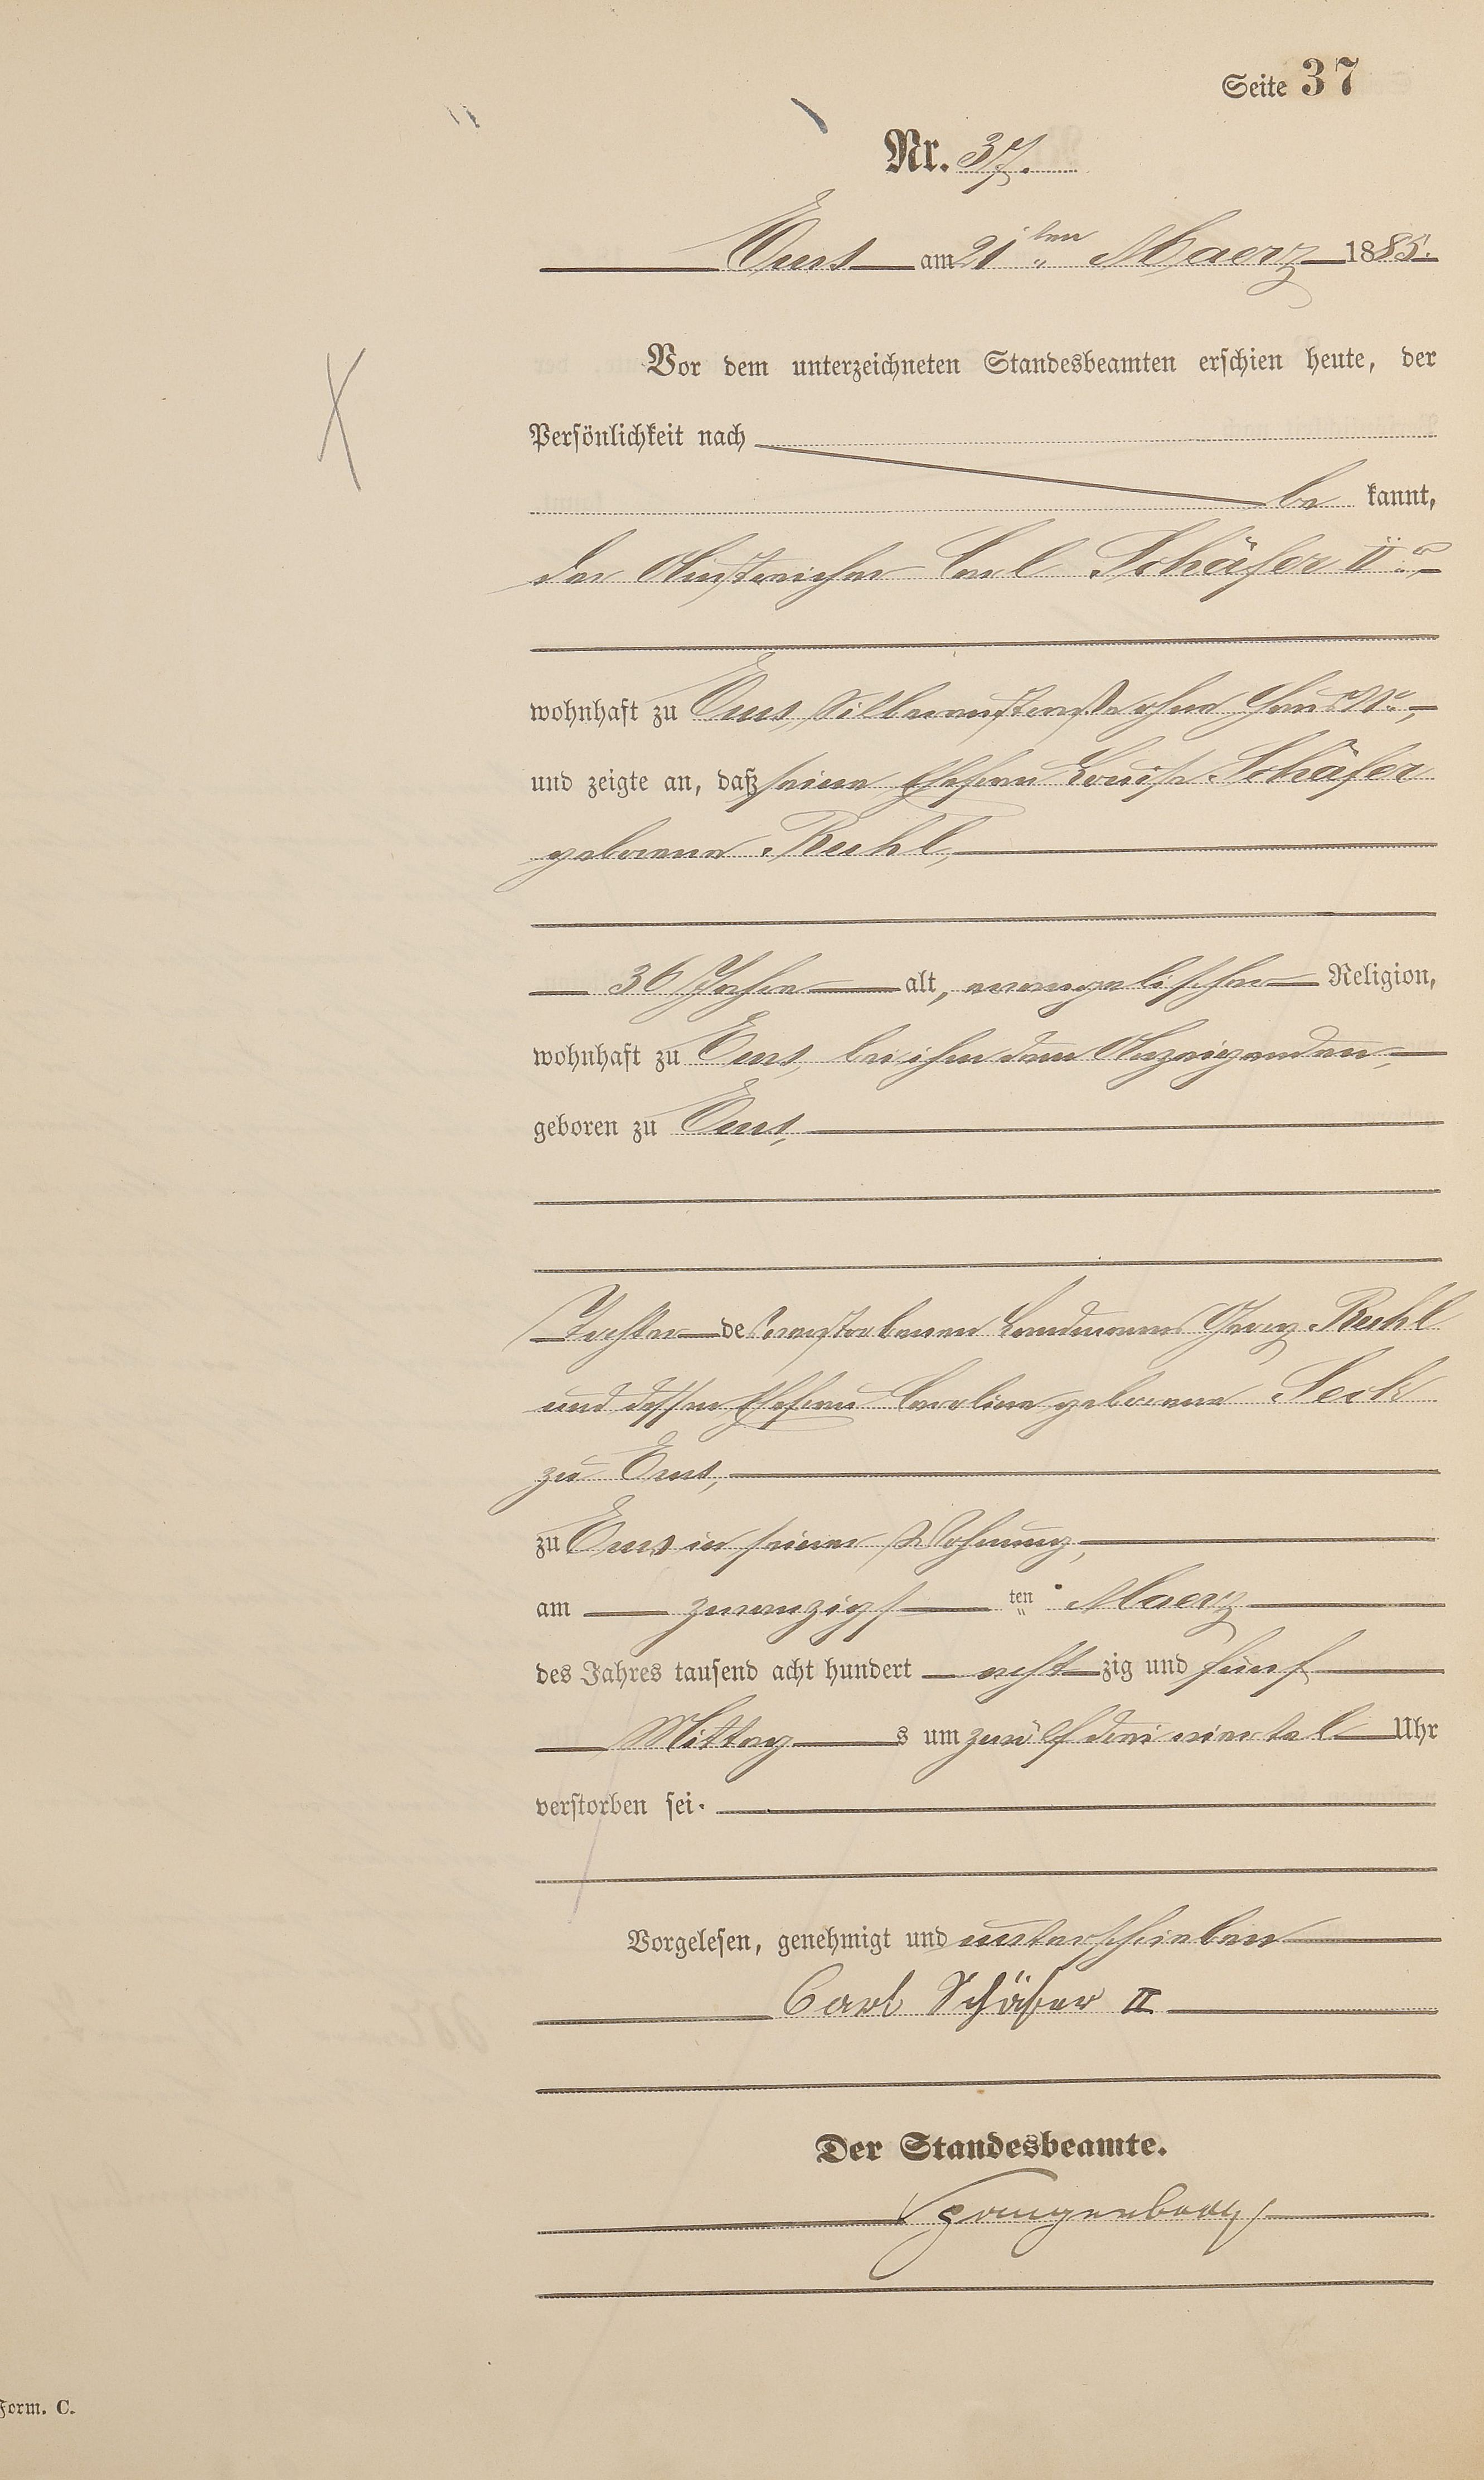 Seite 37
Nr. 37.
Ems am 21ten Maerz 1885.
Vor dem unterzeichneten Standesbeamten erschien heute, der
Persönlichkeit nach
be kannt,
der Anstreicher Carl Schäfer II
wohnhaft zu Ems, Silberaustraße ohne Haus No,
und zeigte an, daß seine Ehefrau Louise Schäfer
geborene Ruhl,
36 Jahre alt, evangelischer Religion,
wohnhaft zu Ems, bei ihm dem Anzeigenden,
geboren zu Ems,
Tochter des verstorbenen Landmanns Georg Ruhl
und dessen Ehefrau Caroline geborene
zu Ems,
zu Ems in seiner Wohnung,
am zwanzigsten Maerz
des Jahres tausend acht hundert achtzig und fünf
Mittags um zwölf drei viertel Uhr
verstorben sei.
Vorgelesen, genehmigt und unterschrieben
Carl Schäfer II
Der Standesbeamte.
Spangenberg
Form. C.